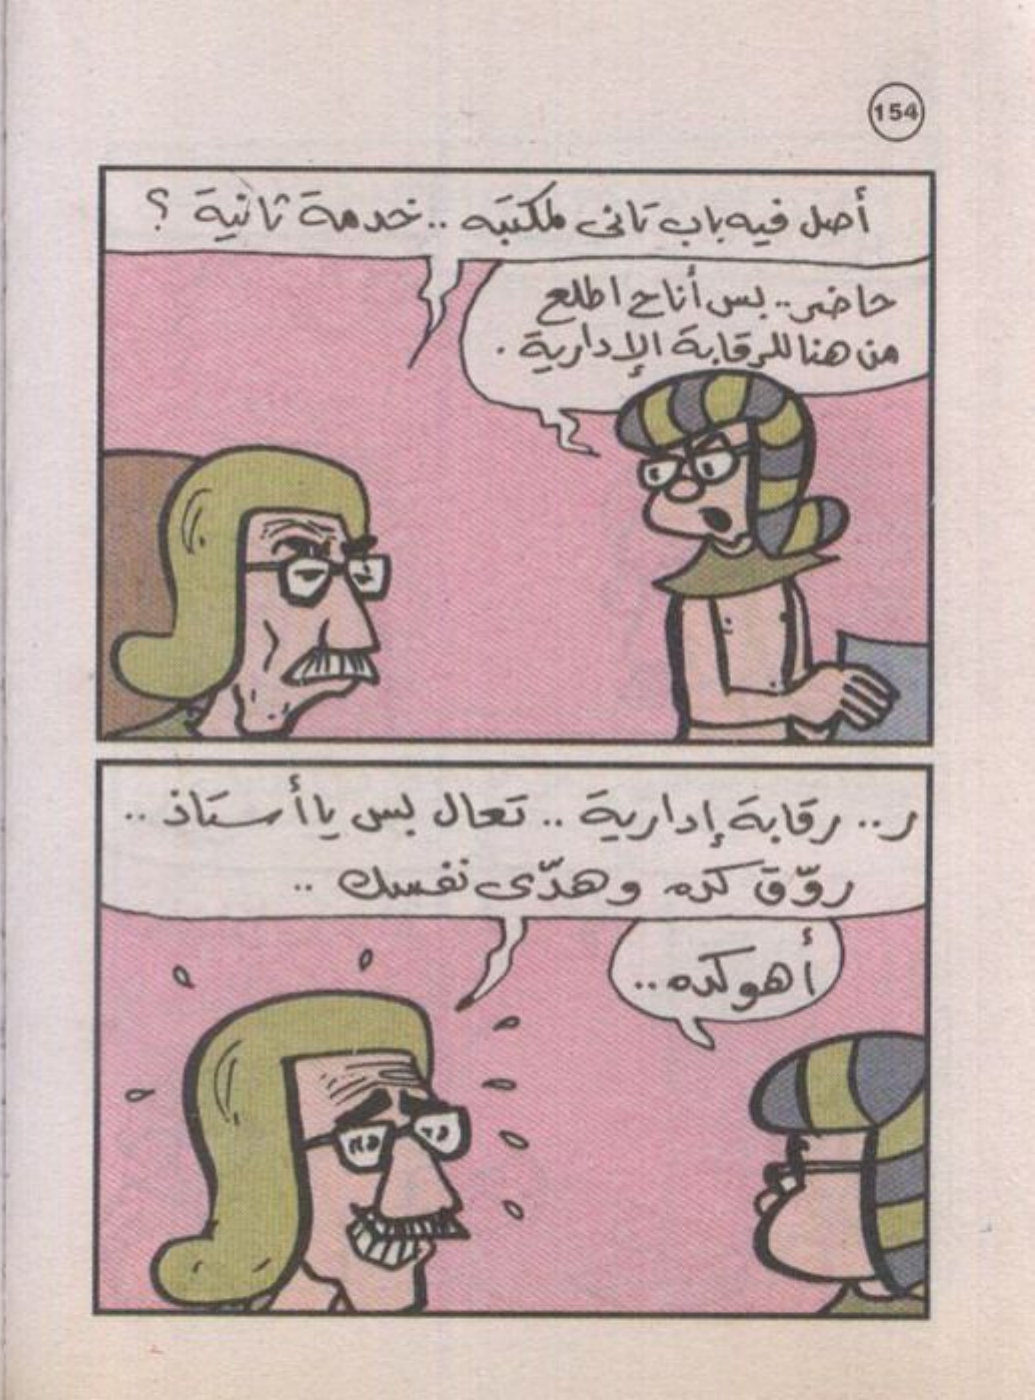 154
أصل فيه باب تانى لمكتبه .. خدمة ثانية ؟
حاضر .. بس أنا ح اطلع
من هنا للرقابة الإدارية .
ر .. رقابة إدارية .. تعال بس يا أستاذ ..
روّق كده وهدّى نفسك ..
أهو كده ..